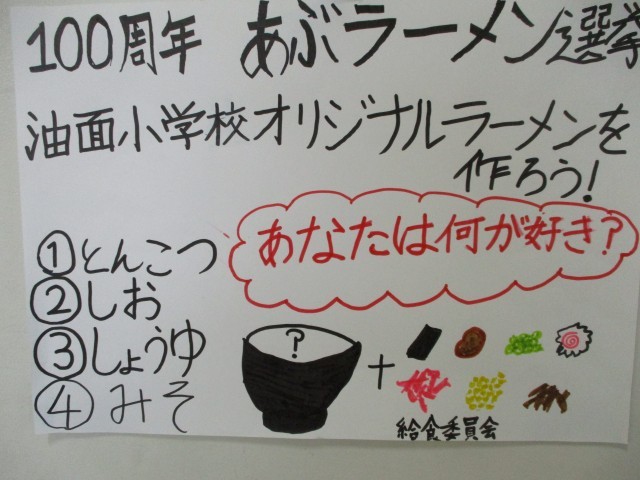 100周年 あぶラーメン選挙
油面小学校オリジナルラーメンを
作ろう!
あなたは何が好き?
①とんこつ
②しお
③しょうゆ
④みそ
?
+
給食委員会